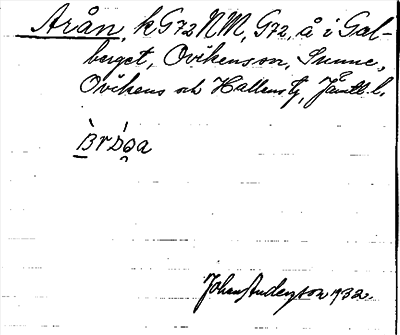 Arån, k G72 NM, G72, å i Gal-
berget, Ovikenson, Sunne,
Ovikens och Hallens tg, Jämtl. l.
Johan Anderson 1932.